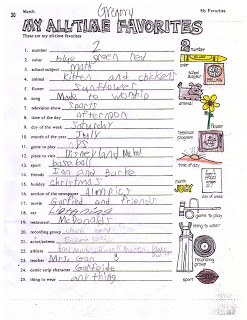 30 March My Favorites
Grammy
MY ALL TIME FAVORITES
These are my alltime favorites
1. number 2
2. color blue green red
3. school subject math
4. animal kitten and chickens
5. flower sunflower
6. song Made to worship
7. television show sports
8. time of the day afternoon
9. day of the week Saturday
10. month of the year July
11. game to play DS
12. place to visit Disneyland
13. sport baseball
14. friends Ian and Burke
15. holiday christmas
16. section of the newspaper
17. movie Garfied and friends
18. car Lightning
19. restaurant McDonalds
20. recording group
21. actor/actress
22. address
23. teacher Mrs. Gan
24. comic strip character Garfeide
25. thing to wear any thing
number
color
school subject
animal
flower
television program
time of day
month
JULY
game to play
thing to wear
sport